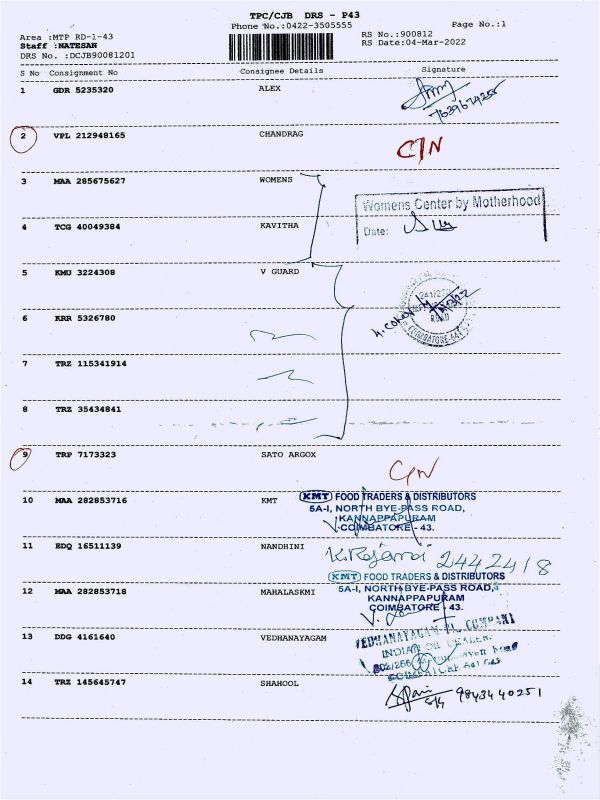 TPC/CJB DRS - P43
Phone No.:0422-3505555
Page No.:1
Area :MTP RD-1-43
RS No.:900812
Staff :NATESAN
RS Date:04-Mar-2022
DRS No. :DCJB90081201
S No Consignment No Consignee Details Signature
1 GDR 5235320 ALEX
2 VPL 212948165 CHANDRAG
C/N
3 MAA 285675627 WOMENS
Womens Center by Motherhood
4 TCG 40049384 KAVITHA
Date:
5 KMU 3224308 V GUARD
COIMBATORE-641
6 KRR 5326780
7 TRZ 115341914
8 TRZ 35434841
9 TRP 7173323 SATO ARGOX
C/N
10 MAA 282853716 KMT
KMT FOOD TRADERS & DISTRIBUTORS
5A-I, NORTH BYE-PASS ROAD,
KANNAPPAPURAM
COIMBATORE - 43.
11 EDQ 16511139 NANDHINI
K.Rajamani 2442418
KMT FOOD TRADERS & DISTRIBUTORS
12 MAA 282853718 MAHALASKMI
5A-I, NORTH BYE-PASS ROAD,
KANNAPPAPURAM
COIMBATORE - 43.
13 DDG 4161640 VEDHANAYAGAM
VEDHANAYAGAM COMPANY
INDIAN OIL DEALER
14 TRZ 145645747 SHAHOOL
9843440251